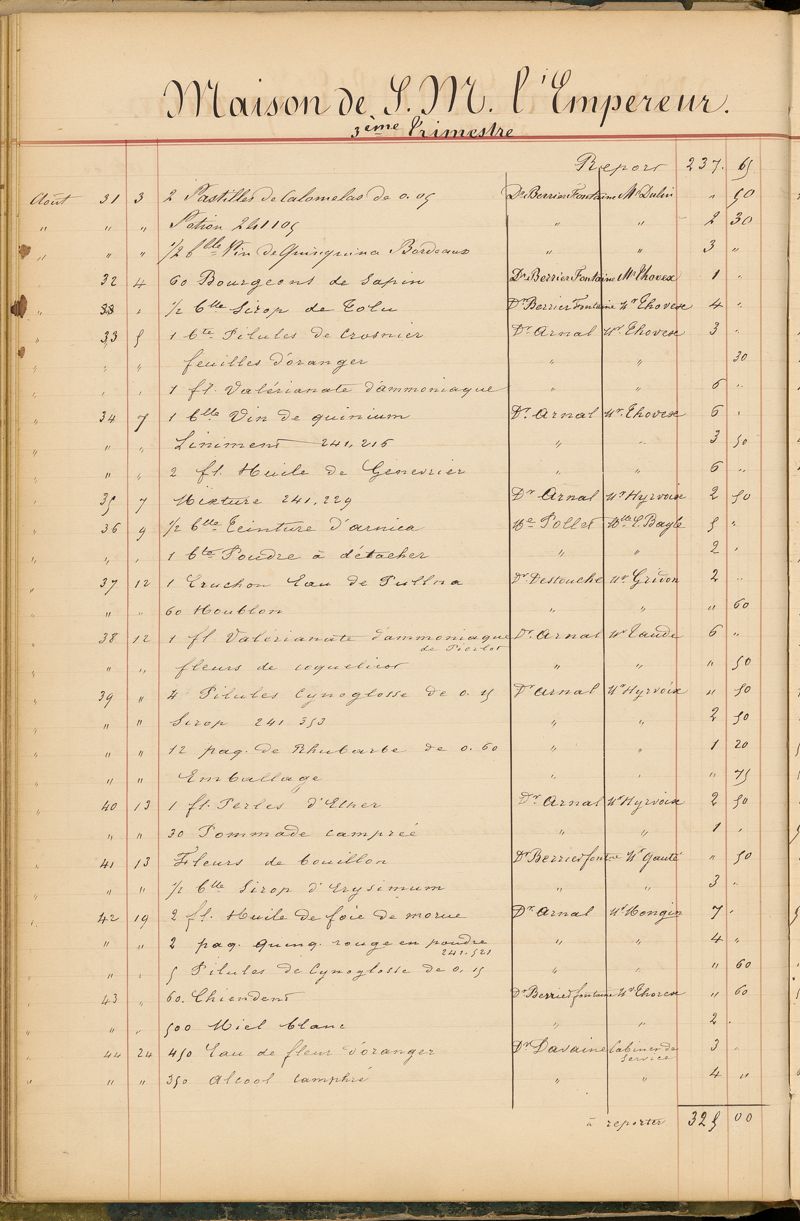 Maison de S. M. l'Empereur.
3ème Trimestre
Report 237. 65
Août 31 3 2 Pastilles de Calomelas de 0.05 Dr Berrier Fontaine Mr Dulin " 50
" " " Potion 241105 " " 2 30
" " " 1/2 blle Vin de Quinquina Bordeaux " " 3 "
" 32 4 60 Bourgeons de Sapin Dr Berrier Fontaine Mr Thovex 1 "
" 38 " 1/2 blle Sirop de Tolu Dr Berrier Fontaine Mr Thovex 4 "
" 33 5 1 bte Pilules de Crosnier Dr Arnal Mr Thovex 3 "
" " " feuilles d'oranger " " 30
" " " 1 fl. Valérianate d'ammoniaque " " 6 "
" 34 7 1 blle Vin de quinium Dr Arnal Mr Thovex 6 "
" " " Liniment 241,216 " " 3 50
" " " 2 fl. Huile de Genevrier " " 6 "
" 35 7 Mixture 241,229 Dr Arnal Mr Hyrvoix 2 50
" 36 9 1/2 blle Teinture d'arnica Me Pollet Mlle L. Bayle 5 "
" " " 1 bte Poudre à détacher " " 2 "
" 37 12 1 Cruchon Eau de Pullna Dr Destouche Mr Gridon 2 "
" " " 60 Houblon " " " 60
" 38 12 1 fl Valérianate d'ammoniaque Dr Arnal Mr Taude 6 "
de Pierlot
" " " fleurs de coquelicot " " " 50
" 39 " 4 Pilules Cynoglosse de 0.15 Dr Arnal Mr Hyrvoix " 50
" " " Sirop 241 353 " " 2 50
" " " 12 paq. de Rhubarbe de 0.60 " " 1 20
" " " Emballage " " " 75
" 40 13 1 fl. Perles d'Ether Dr Arnal Mr Hyrvoix 2 50
" " " 30 Pommade camprée " " 1 "
" 41 13 Fleurs de bouillon Dr Berrier fontne Mr Gauté " 50
" " " 1/2 blle Sirop d'Erysimum " " 3 "
" 42 19 2 fl. Huile de foie de morue Dr Arnal Mr Mongin 7 "
" " " 2 paq. Quinq. rouge en poudre " " 4 "
241.521
" " " 5 Pilules de Cynoglosse de 0.15 " " " 60
" 43 " 60. Chiendent Dr Berrier fontaine Mr Thovex " 60
" " " 500 Miel blanc " " 2 "
" 44 24 450 Eau de fleur d'oranger Dr Davaine Cabinet de 3 "
Service
" " " 350 Alcool camphré " " 4 "
à reporter 325 00